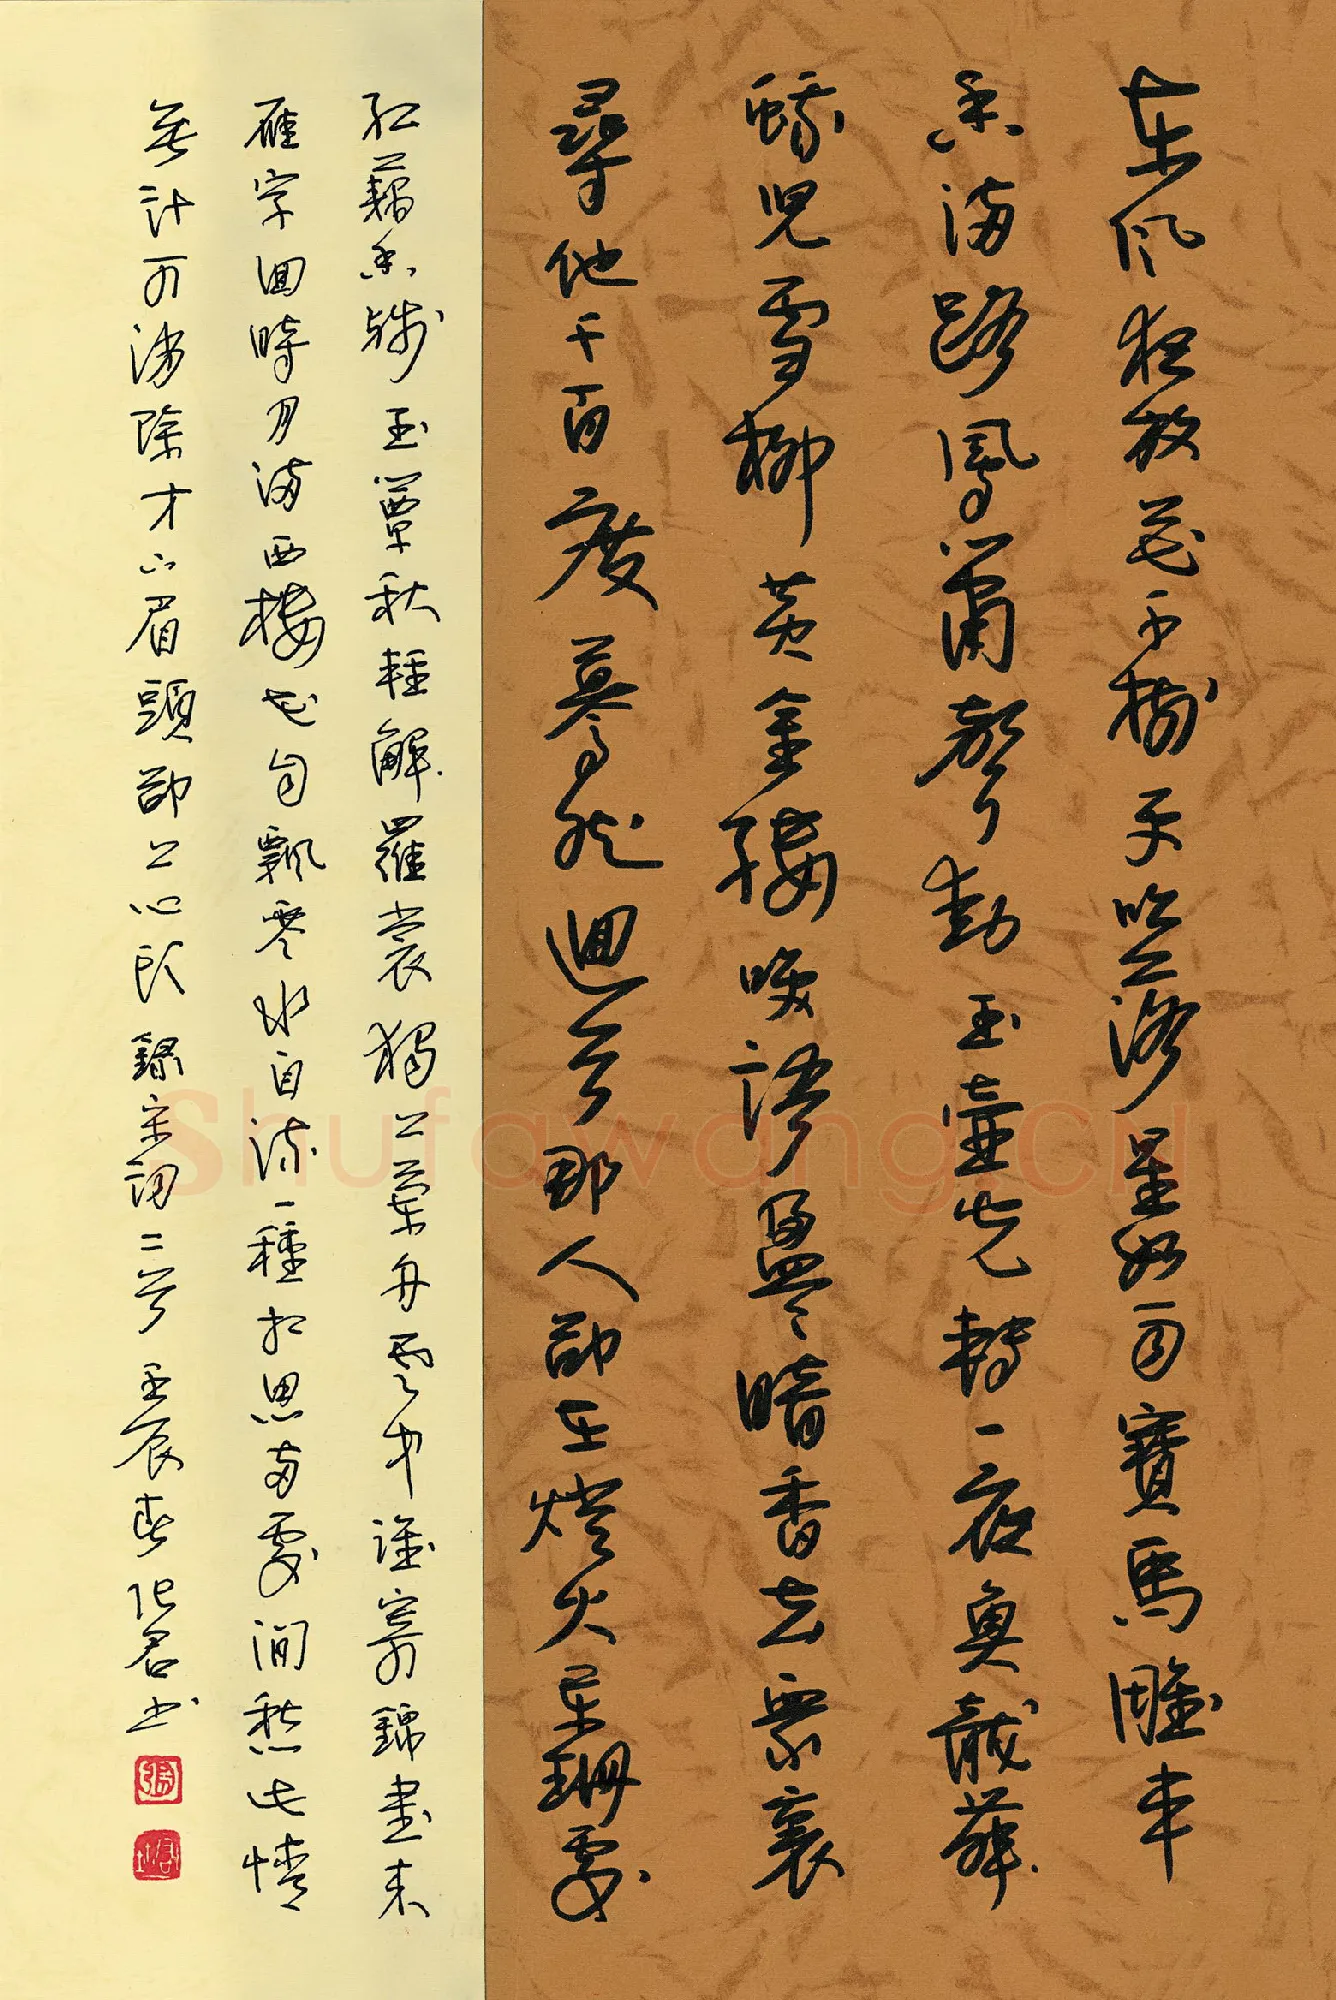 東风夜放花千樹更吹落星如雨寶馬雕車
香滿路鳳簫聲動玉壺光轉一夜魚龍舞
蛾兒雪柳黃金縷咲語盈々暗香去眾裏
尋他千百度驀然迴首那人卻在燈火闌珊處
紅藕香殘玉簟秋輕解羅裳獨上蘭舟雲中誰寄錦書來
雁字回時月滿西樓花自飄零水自流一種相思兩處閒愁此情
無計可消除才下眉頭卻上心頭錄宋詞二首壬辰春張君書
Shufawang.CN